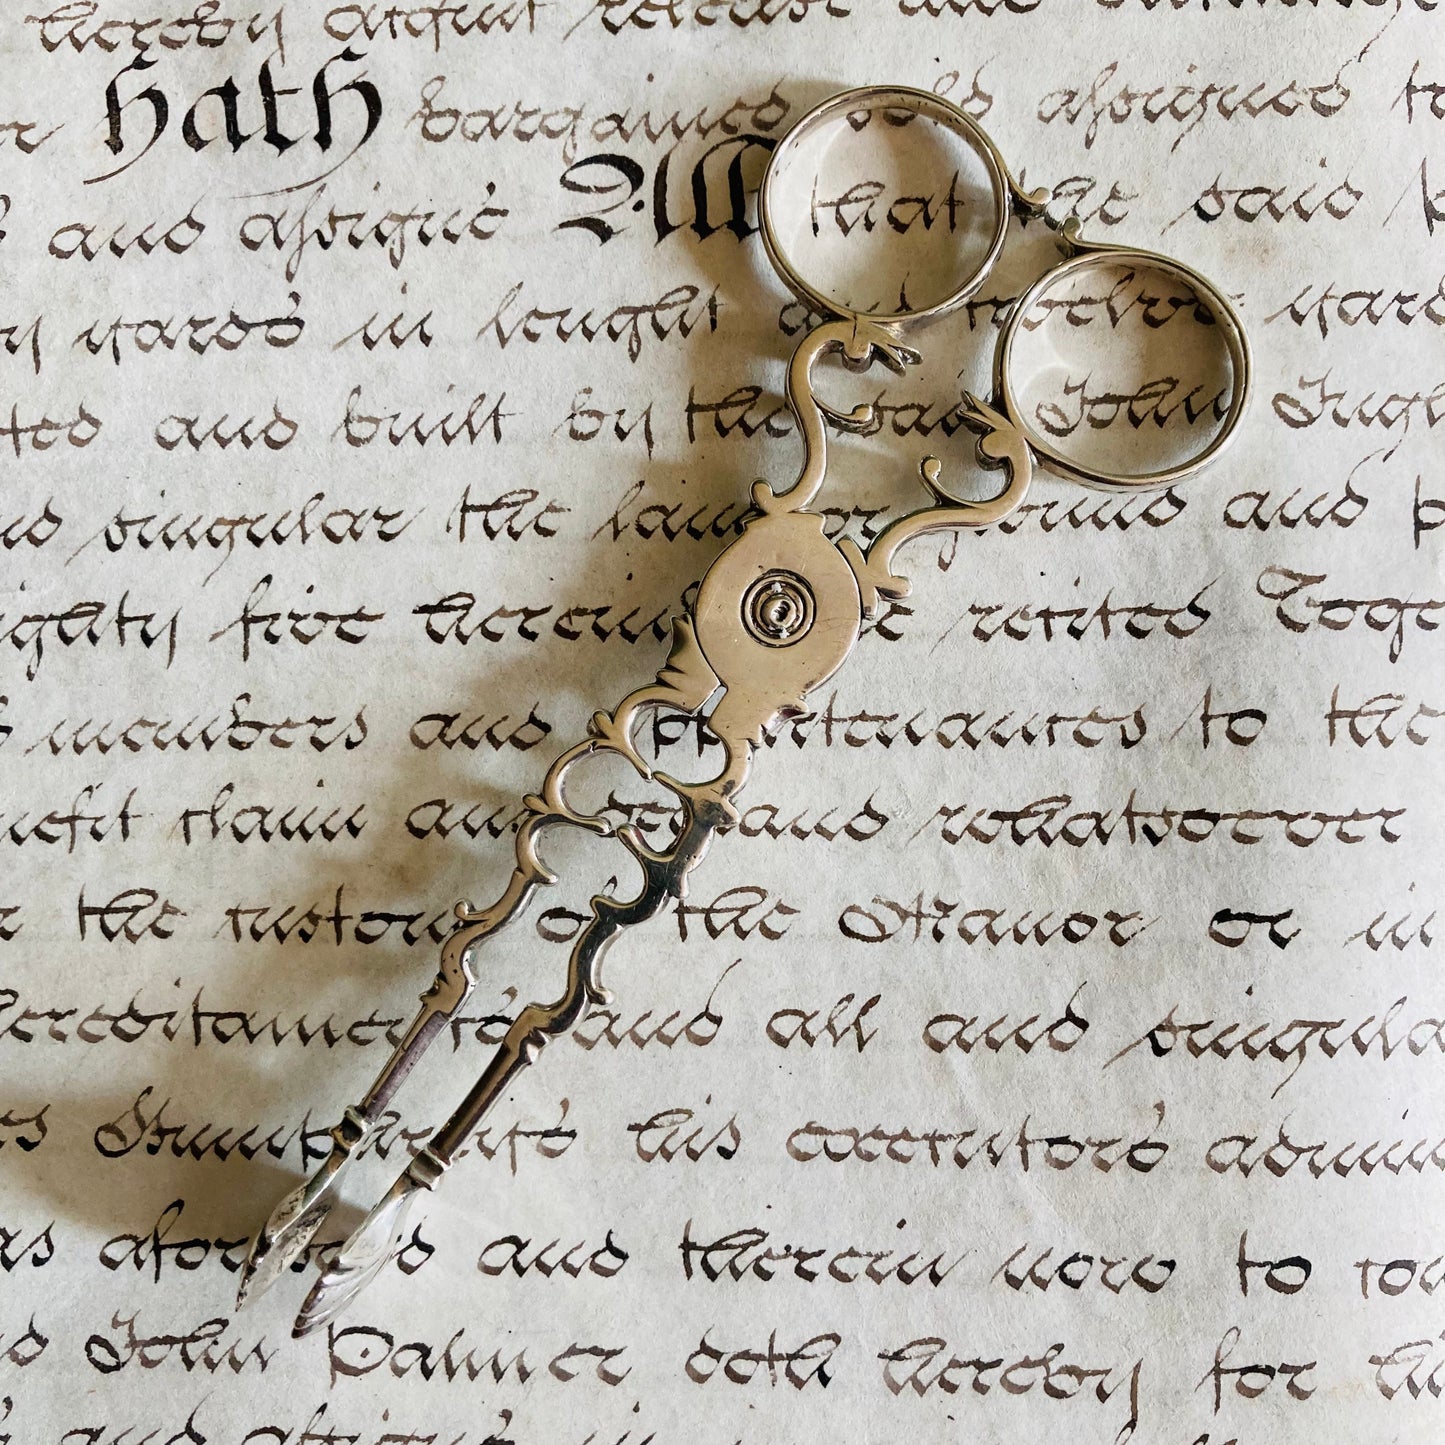 hereby acquit release and
hath bargained sold assigned
and assigns All that the said
yards in lenght and twelve yards
ted and built by the said John Ingh
singular the land or ground and
ighty five herein recited Toge
members and appurtenances to the
efit claim and demand whatsoever
the custom of the Manor or in
Hereditaments and all and singular
his executors admin
as aforesaid and therein now to
John Palmer doth hereby for
and assigns